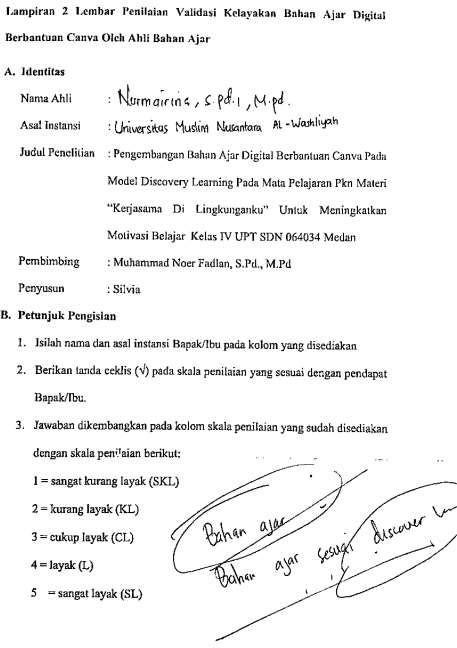 Lampiran 2 Lembar Penilaian Validasi Kelayakan Bahan Ajar Digital
Berbantuan Canva Oleh Ahli Bahan Ajar
A. Identitas
Nama Ahli : Nurmairina, S.Pd.I, M.Pd.
Asal Instansi : Universitas Muslim Nusantara Al-Washliyah
Judul Penelitian : Pengembangan Bahan Ajar Digital Berbantuan Canva Pada
Model Discovery Learning Pada Mata Pelajaran Pkn Materi
“Kerjasama Di Lingkunganku” Untuk Meningkatkan
Motivasi Belajar Kelas IV UPT SDN 064034 Medan
Pembimbing : Muhammad Noer Fadlan, S.Pd., M.Pd
Penyusun : Silvia
B. Petunjuk Pengisian
1. Isilah nama dan asal instansi Bapak/Ibu pada kolom yang disediakan
2. Berikan tanda ceklis (√) pada skala penilaian yang sesuai dengan pendapat
Bapak/Ibu.
3. Jawaban dikembangkan pada kolom skala penilaian yang sudah disediakan
dengan skala penilaian berikut:
1 = sangat kurang layak (SKL)
2 = kurang layak (KL)
3 = cukup layak (CL)
4 = layak (L)
5 = sangat layak (SL)
Bahan ajar
Bahan ajar sesuai discover